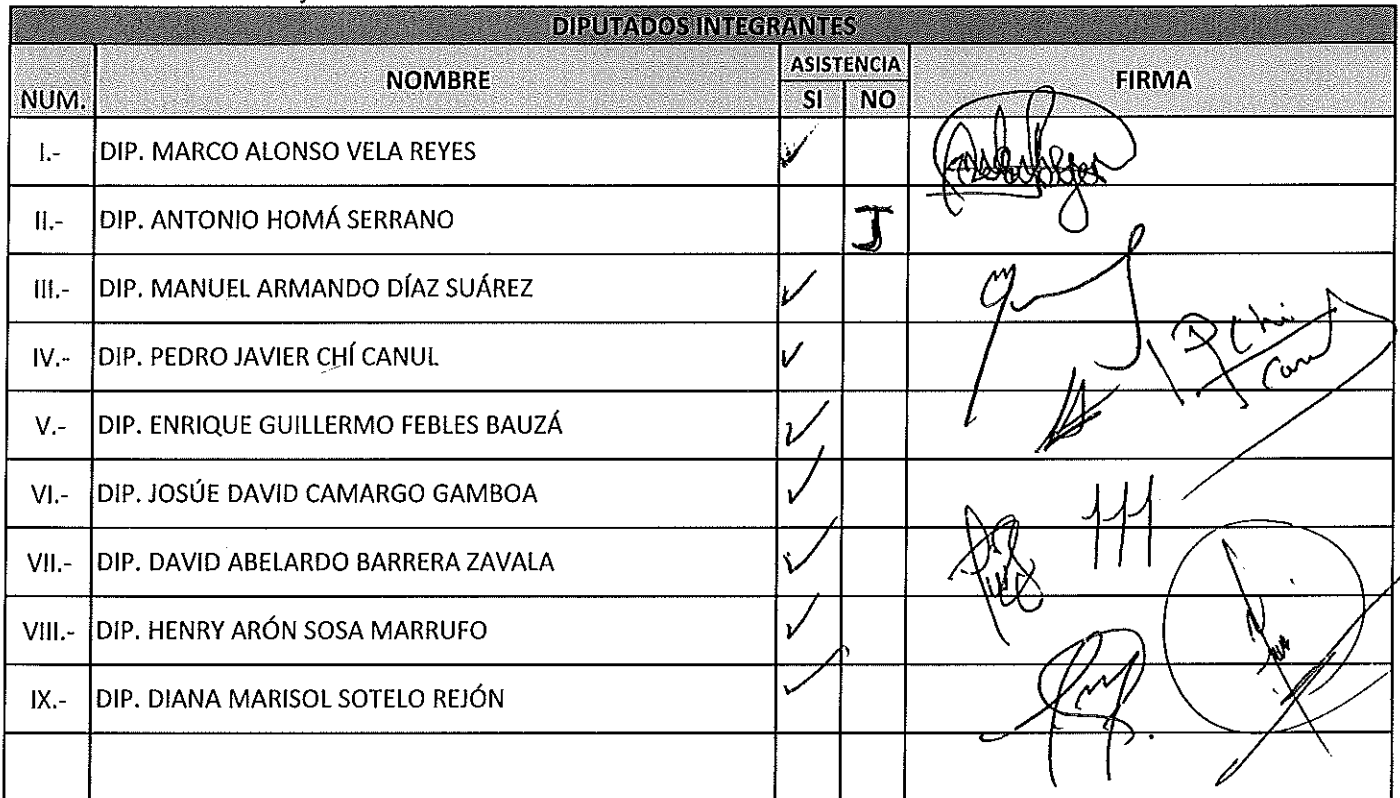 DIPUTADOS INTEGRANTES
NUM. NOMBRE ASISTENCIA FIRMA
SI NO
I.- DIP. MARCO ALONSO VELA REYES ✓
II.- DIP. ANTONIO HOMÁ SERRANO J
III.- DIP. MANUEL ARMANDO DÍAZ SUÁREZ ✓
IV.- DIP. PEDRO JAVIER CHÍ CANUL ✓ P Chi
V.- DIP. ENRIQUE GUILLERMO FEBLES BAUZÁ ✓
VI.- DIP. JOSÚE DAVID CAMARGO GAMBOA ✓
VII.- DIP. DAVID ABELARDO BARRERA ZAVALA ✓
VIII.- DIP. HENRY ARÓN SOSA MARRUFO ✓
IX.- DIP. DIANA MARISOL SOTELO REJÓN ✓